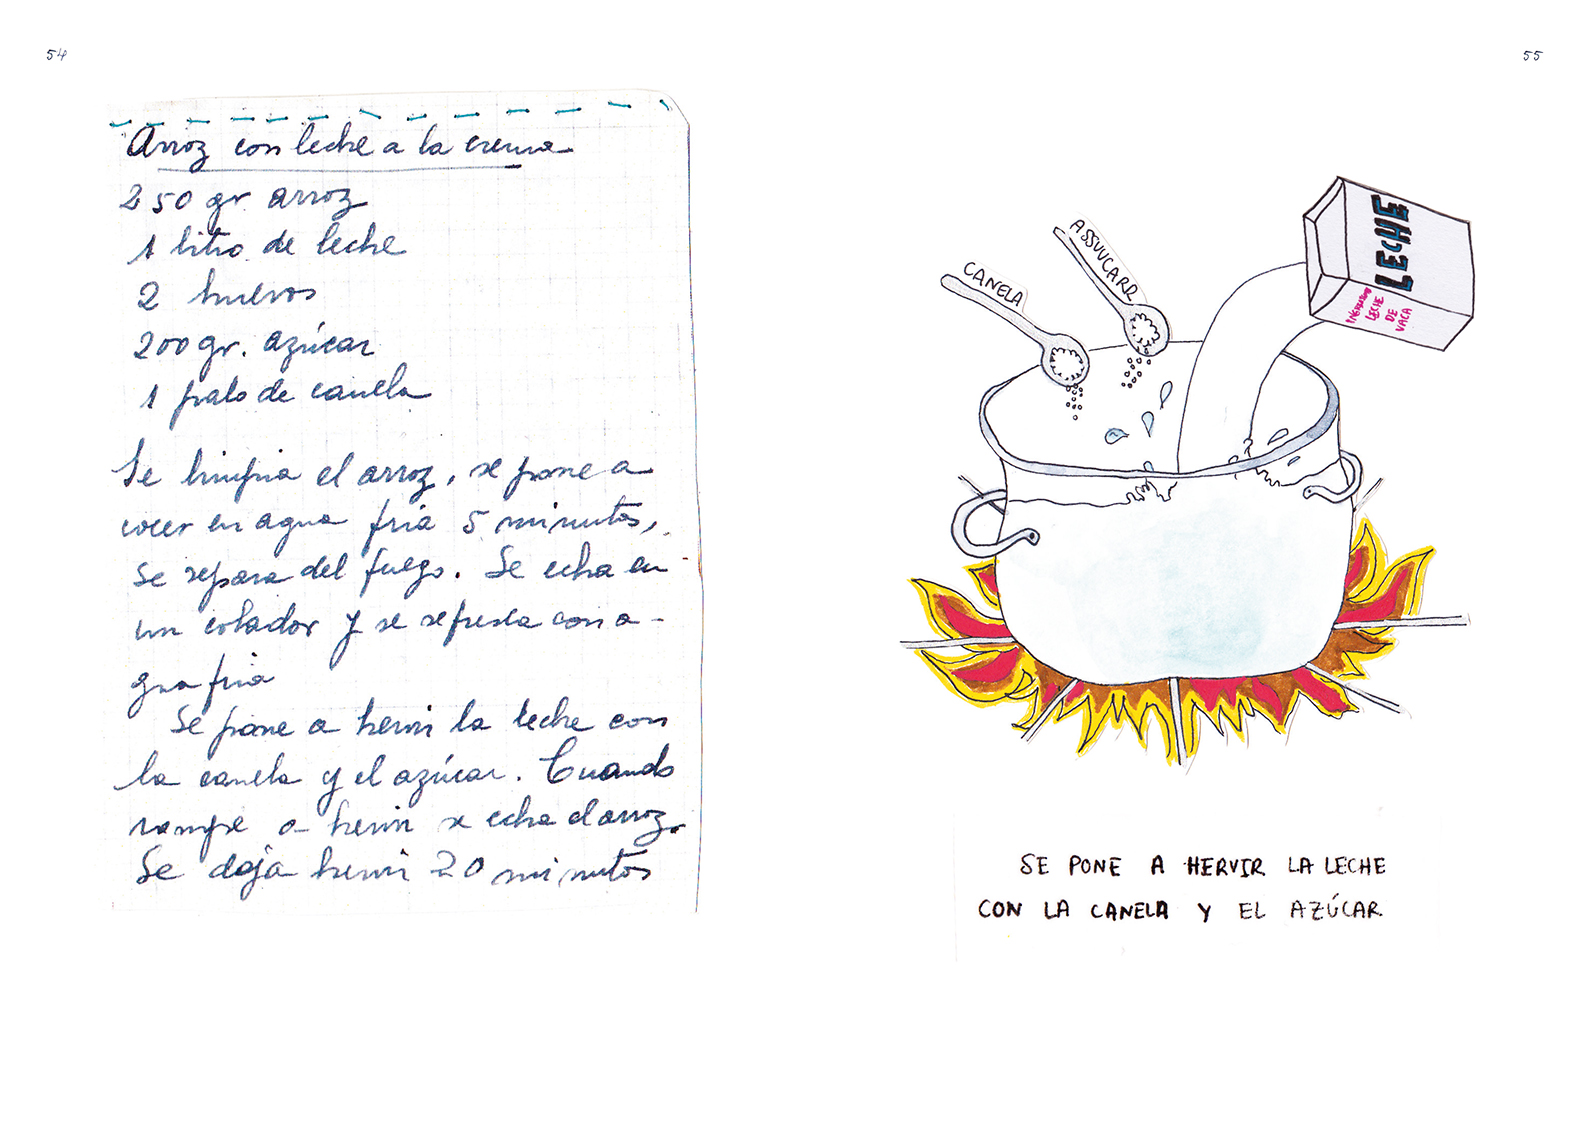 54
Arroz con leche a la crema
250 gr arroz
1 litro de leche
2 huevos
200 gr. azúcar
1 palo de canela
Se limpia el arroz, se pone a
cocer en agua fria 5 minutos,
Se separa del fuego. Se echa en
un colador y se refresca con a-
gua fria
Se pone a hervir la leche con
la canela y el azúcar. Cuando
rompe a hervir se echa el arroz.
Se deja hervir 20 minutos
55
CANELA
ASSUUCARR
LECHE
INGREDIENTES
LECHE
DE
VACA
SE PONE A HERVIR LA LECHE
CON LA CANELA Y EL AZÚCAR